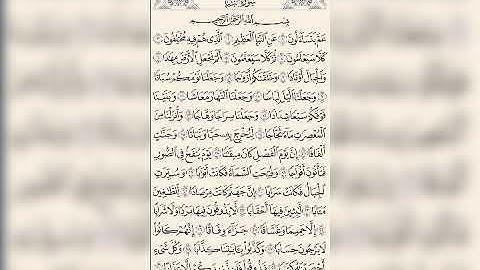 سُورَةُ النَّبَإِ
بِسْمِ اللَّهِ الرَّحْمَٰنِ الرَّحِيمِ
عَمَّ يَتَسَاءَلُونَ ۝ عَنِ النَّبَإِ الْعَظِيمِ ۝ الَّذِي هُمْ فِيهِ مُخْتَلِفُونَ ۝
كَلَّا سَيَعْلَمُونَ ۝ ثُمَّ كَلَّا سَيَعْلَمُونَ ۝ أَلَمْ نَجْعَلِ الْأَرْضَ مِهَٰدًا ۝
وَالْجِبَالَ أَوْتَادًا ۝ وَخَلَقْنَٰكُمْ أَزْوَٰجًا ۝ وَجَعَلْنَا نَوْمَكُمْ سُبَاتًا
۝ وَجَعَلْنَا الَّيْلَ لِبَاسًا ۝ وَجَعَلْنَا النَّهَارَ مَعَاشًا ۝ وَبَنَيْنَا
فَوْقَكُمْ سَبْعًا شِدَادًا ۝ وَجَعَلْنَا سِرَاجًا وَهَّاجًا ۝ وَأَنزَلْنَا مِنَ
الْمُعْصِرَٰتِ مَاءً ثَجَّاجًا ۝ لِّنُخْرِجَ بِهِ حَبًّا وَنَبَاتًا ۝ وَجَنَّٰتٍ
أَلْفَافًا ۝ إِنَّ يَوْمَ الْفَصْلِ كَانَ مِيقَٰتًا ۝ يَوْمَ يُنفَخُ فِي الصُّورِ
فَتَأْتُونَ أَفْوَاجًا ۝ وَفُتِحَتِ السَّمَاءُ فَكَانَتْ أَبْوَٰبًا ۝ وَسُيِّرَتِ
الْجِبَالُ فَكَانَتْ سَرَابًا ۝ إِنَّ جَهَنَّمَ كَانَتْ مِرْصَادًا ۝ لِّلطَّٰغِينَ
مَـَٔابًا ۝ لَّٰبِثِينَ فِيهَا أَحْقَابًا ۝ لَّا يَذُوقُونَ فِيهَا بَرْدًا وَلَا شَرَابًا
۝ إِلَّا حَمِيمًا وَغَسَّاقًا ۝ جَزَاءً وِفَاقًا ۝ إِنَّهُمْ كَانُوا
لَا يَرْجُونَ حِسَابًا ۝ وَكَذَّبُوا بِـَٔايَٰتِنَا كِذَّابًا ۝ وَكُلَّ شَيْءٍ
أَحْصَيْنَٰهُ كِتَٰبًا ۝ فَذُوقُوا فَلَن نَّزِيدَكُمْ إِلَّا عَذَابًا ۝